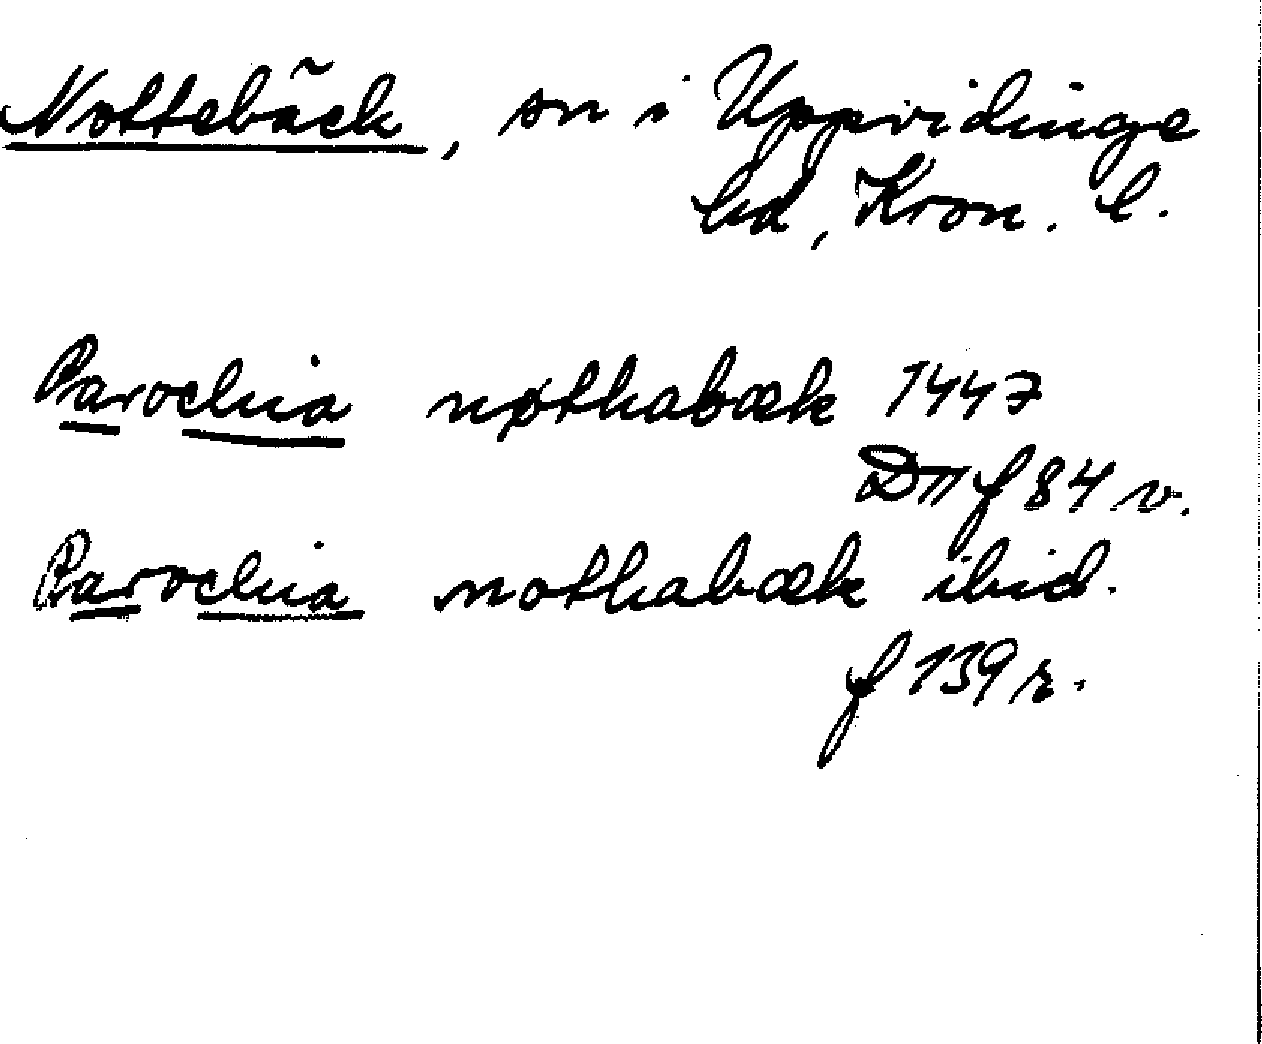 Nottebäck, sn i Uppvidinge
hd, Kron. l.
Parochia nøthabæk 1447
D11 f 84 v.
Parochia nothabæk ibid.
f 139 r.